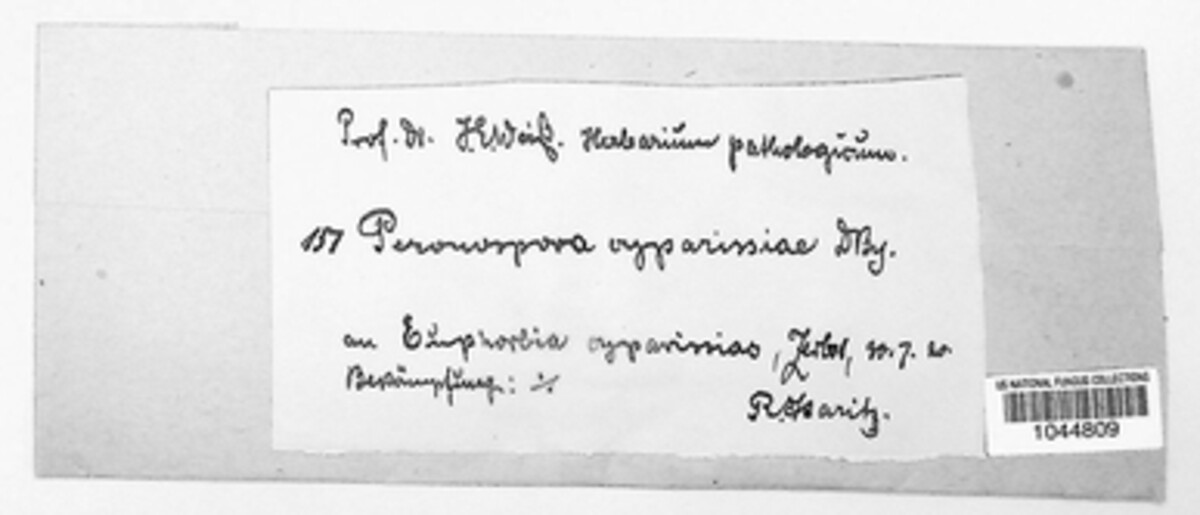 Prof. Dr. J.E.Weiß. Herbarium pathologicum.
157 Peronospora cyparissiae DBy.
an Euphorbia cyparissias, Zerbst,
Bekämpfung: ·/·
R.Staritz.
US NATIONAL FUNGUS COLLECTIONS
1044809